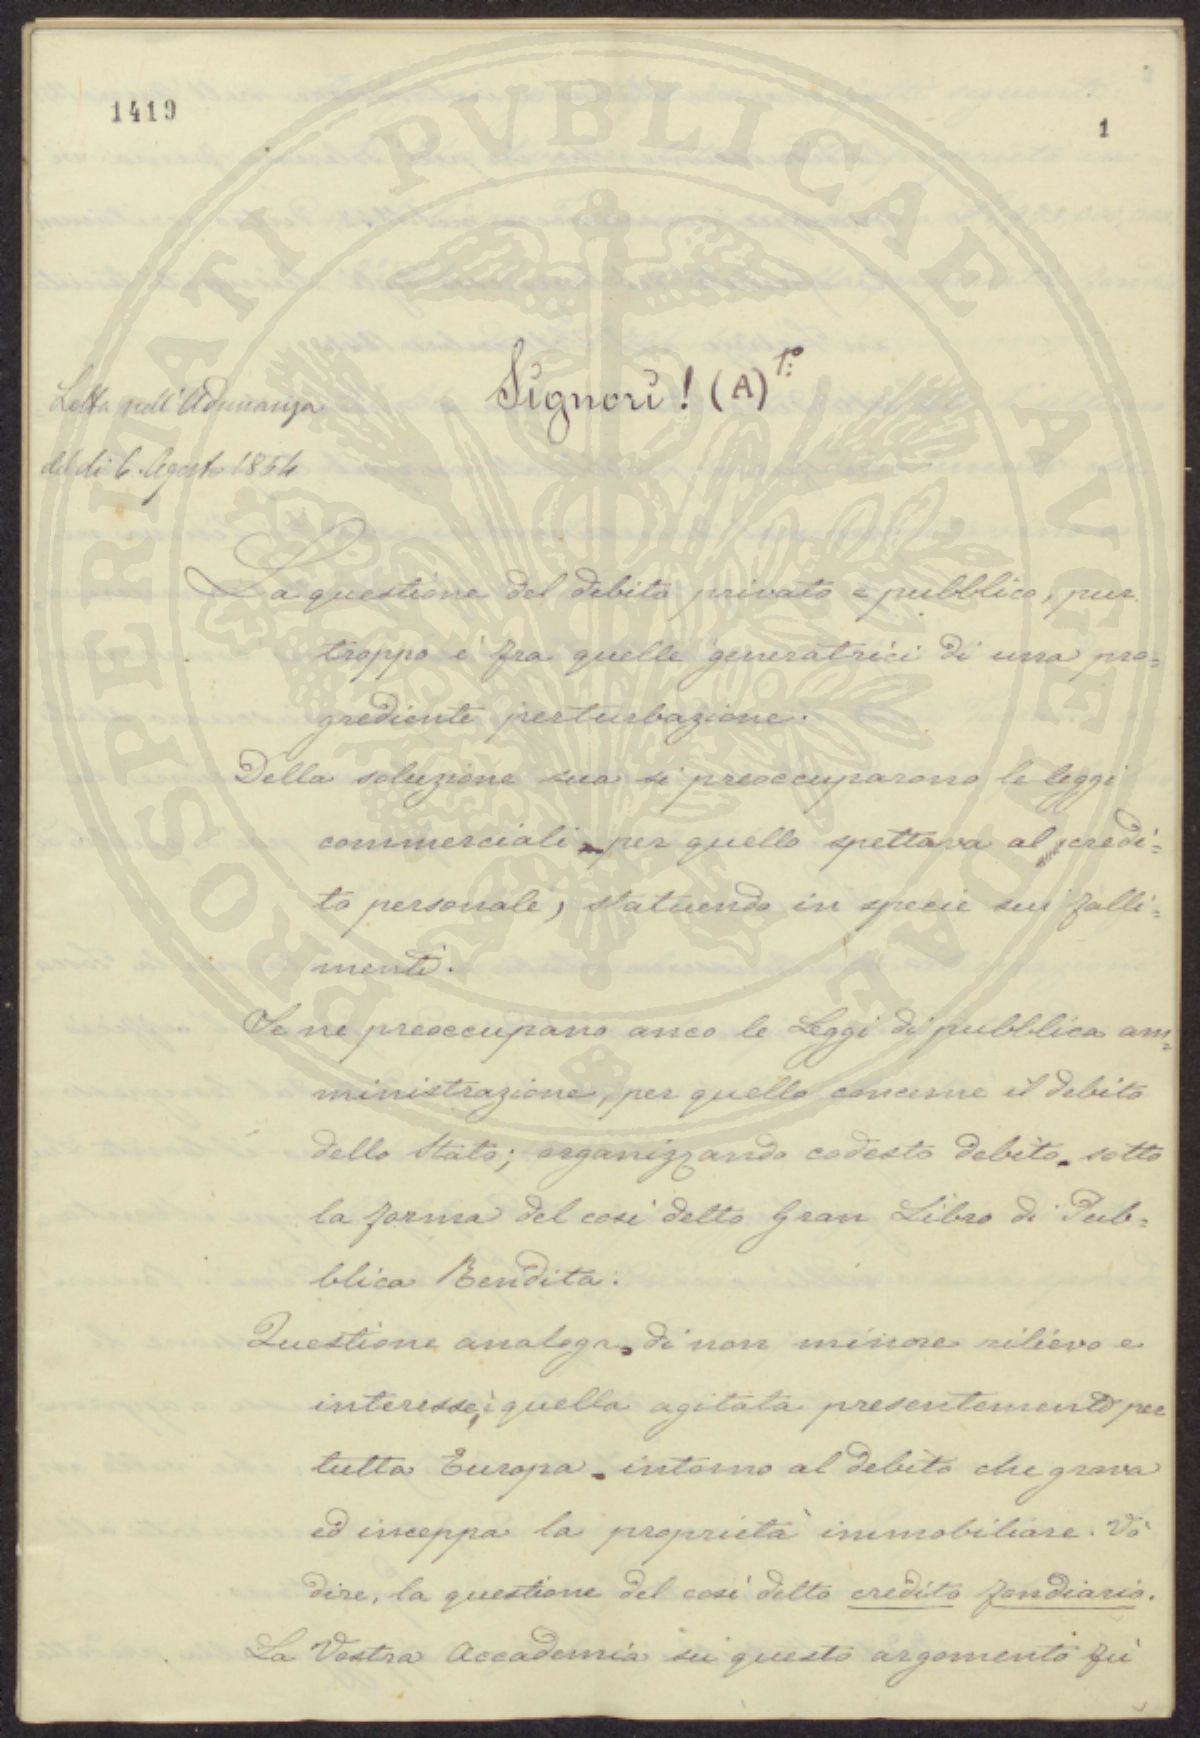 1419
1
Letta nell'Adunanza
del dì 6. Agosto 1854
Signori! (A) 1º:
La questione del debito privato e pubblico, pur
troppo è fra quelle generatrici di una pro=
grediente perturbazione.
Della soluzione sua si preoccuparono le leggi
commerciali, per quello spettava al credi=
to personale; statuendo in specie sui falli=
menti.
Se ne preoccupano anco le Leggi di pubblica am=
ministrazione, per quello concerne il debito
dello Stato; organizzando codesto debito, sotto
la forma del così detto Gran Libro di Pub=
blica Rendita.
Questione analoga, di non minore rilievo e
interesse, è quella agitata presentemente per
tutta Europa, intorno al debito che grava
ed inceppa la proprietà immobiliare. Vò
dire, la questione del così detto credito fondiario.
La Vostra Accademia su questo argomento fù
PROSPERITATI PVBLICAE AVGENDAE